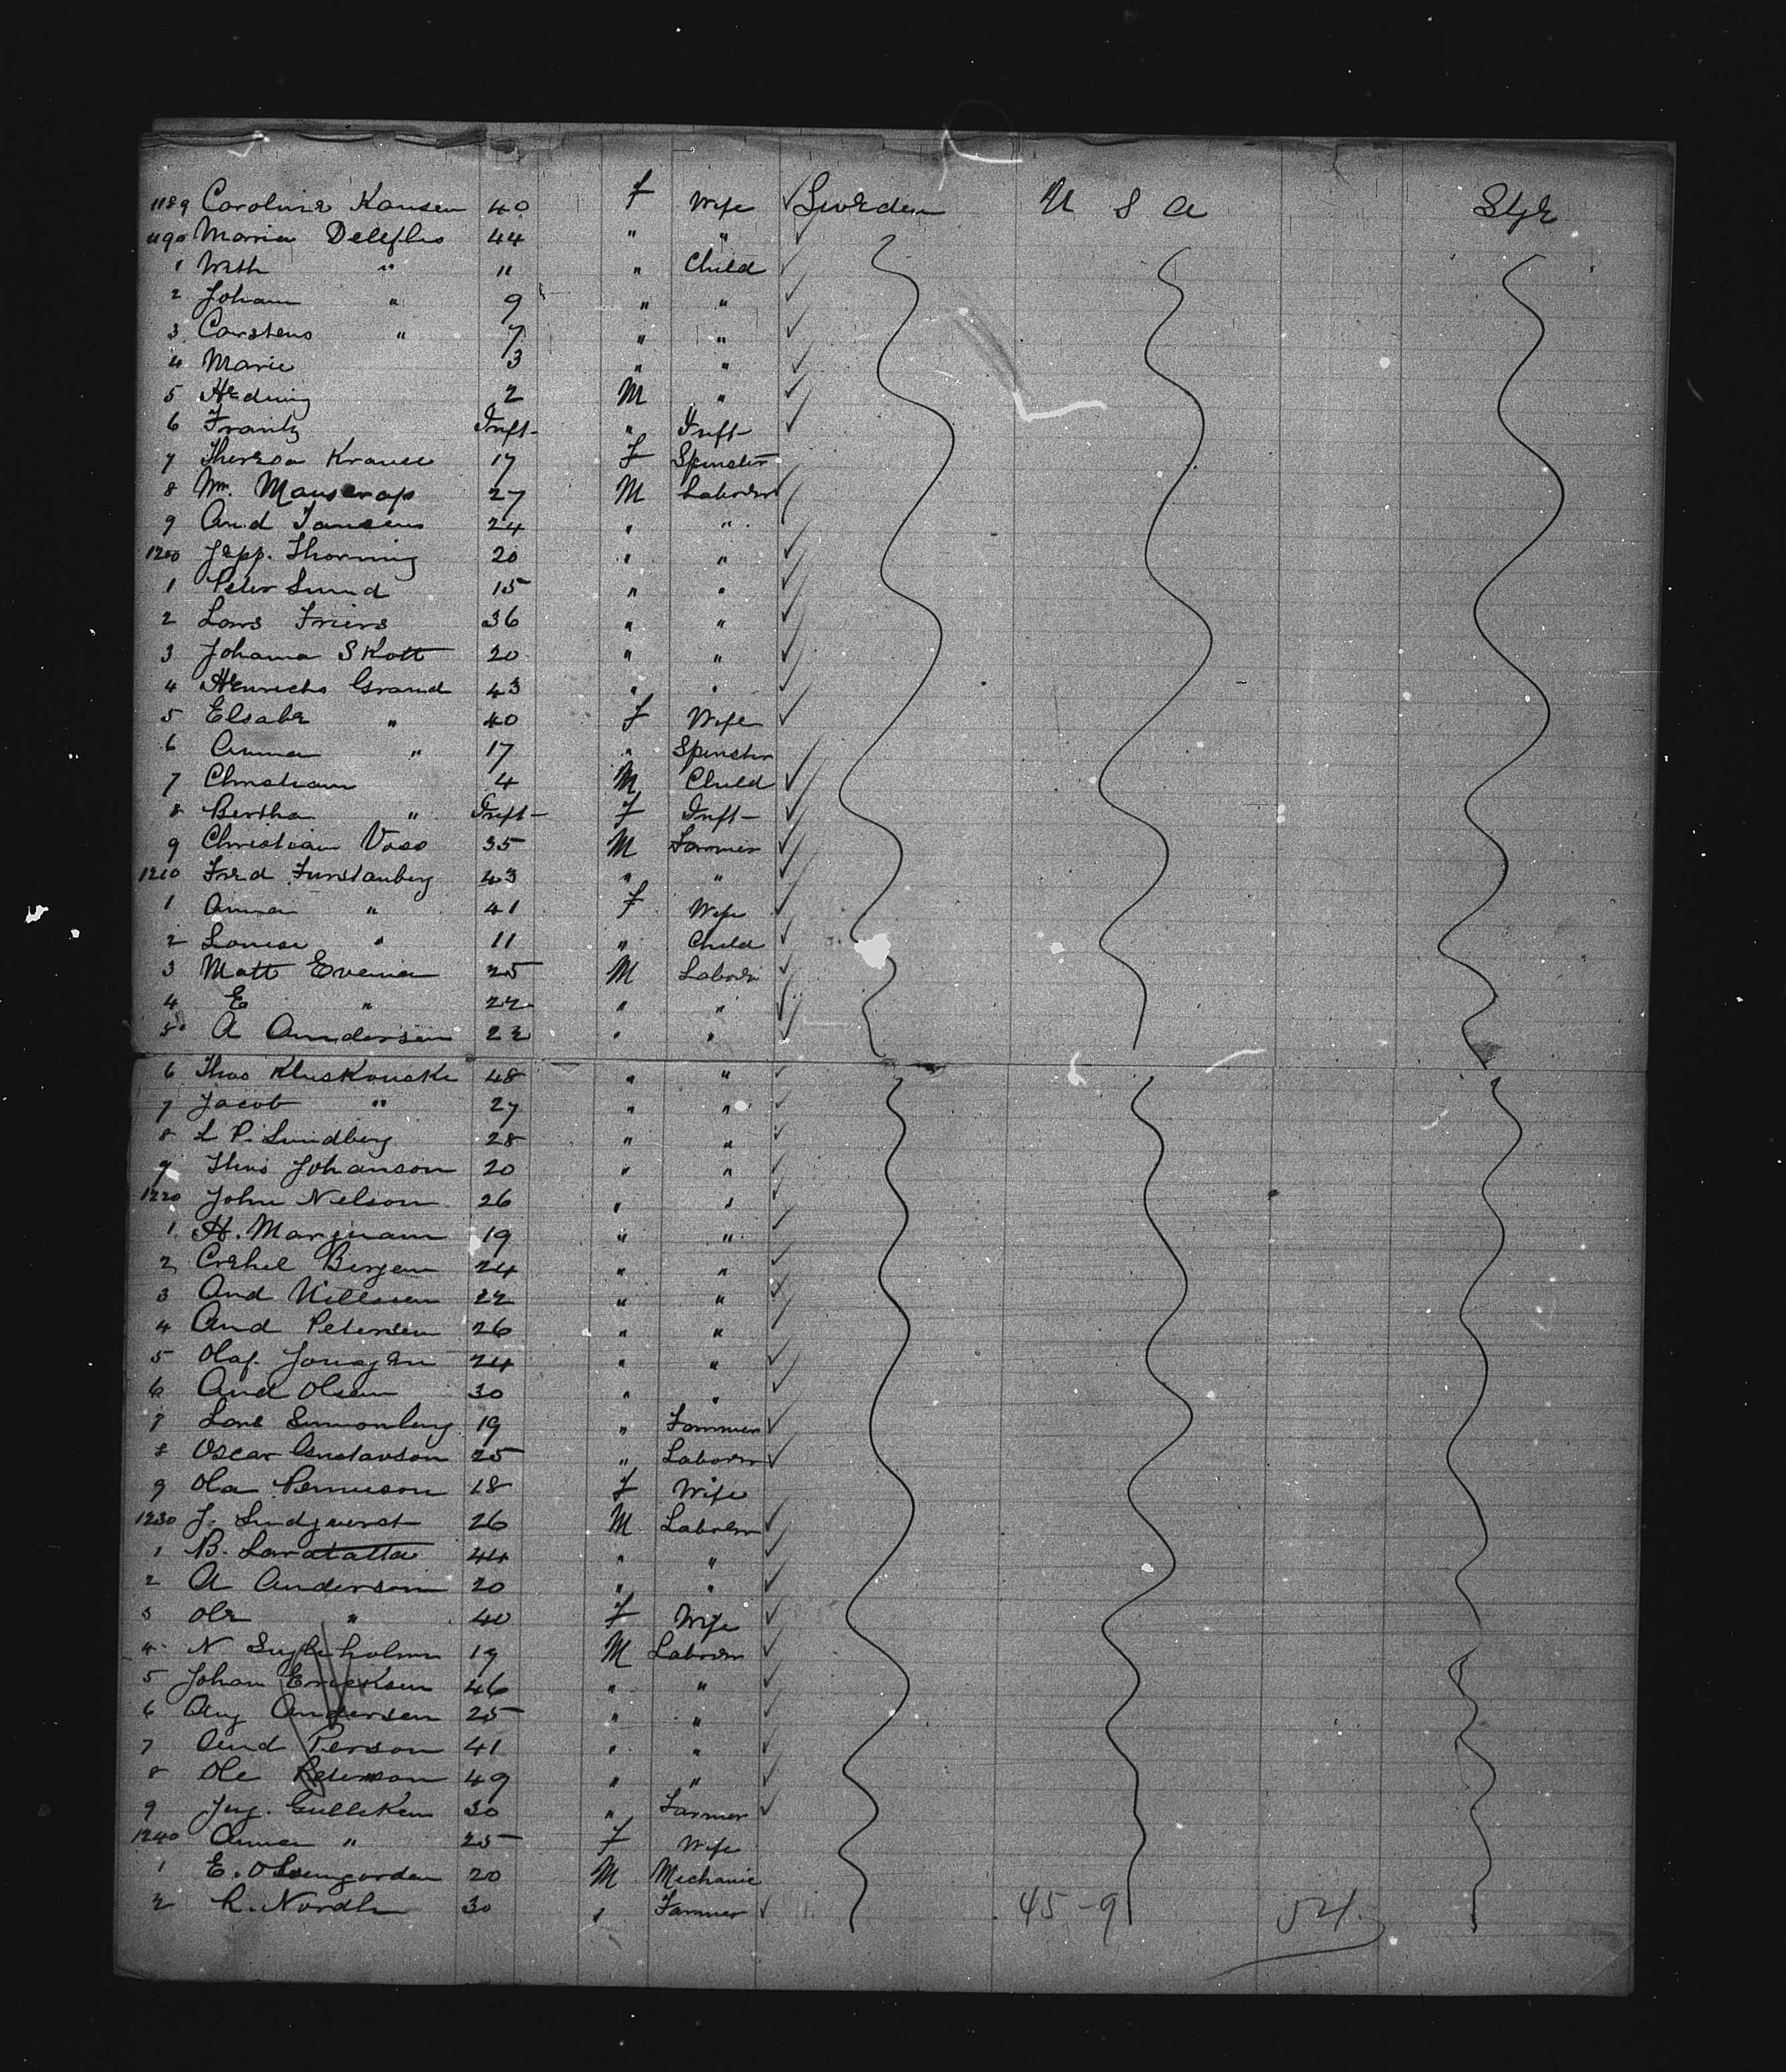 1189 Caroline Kansen 40 f Wife Sweden U S A Stge
1190 Maria Deleflis 44 " "
1 Wilh " 11 " Child
2 Johan " 9 " "
3 Carstens " 7 " "
4 Marie 3 " "
5 Hedwig 2 M "
6 Frantz Inft " Inft
7 Theresa Krause 17 F Spinster
8 Wm. 27 M Laborer
9 And Jansens 24 " "
1200 Jepp. Thorning 20 " "
1 Peter Sund 15 " "
2 Lars Friers 36 " "
3 Johama Skott 20 " "
4 Henrichs Grand 43 " "
5 Elsabe " 40 F Wife
6 Anna " 17 " Spinster
7 Christian 4 M Child
8 Bertha " Inft F Inft
9 Christian Voss 35 M Farmer
1210 Fred Furstanberg 43 " "
1 Anna " 41 F Wife
2 Louise " 11 " Child
3 Matt Evenia 25 M Laborer
4 E " 22 " "
5 A Andersen 22 " "
6 Thos Kluskouske 48 " "
7 Jacob " 27 " "
8 L P. Lundberg 28 " "
9 Thos Johanson 20 " "
1220 John Nelson 26 " "
1 H. Marquam 19 " "
2 Bergen 24 " "
3 And Nillsen 22 " "
4 And Petersen 26 " "
5 Olaf. 24 " "
6 And Olsen 30 " "
7 Lars 19 " Farmer
8 Oscar Gustavson 25 " Laborer
9 Ola Pennson 18 F Wife
1230 J. Lindquerst 26 M Laborer
1 B. Laratatta 44 " "
2 A Anderson 20 " "
3 Ole " 40 F Wife
4 N 19 M Laborer
5 Johan Ericksen 46 " "
6 Aug Andersen 25 " "
7 And Person 41 " "
8 Ole Peterson 49 " "
9 Jug. Gulleken 30 " Farmer
1240 Anna " 25 F Wife
1 E. 20 M Mechanic
2 L. Nordh 30 " Farmer 45-9 54